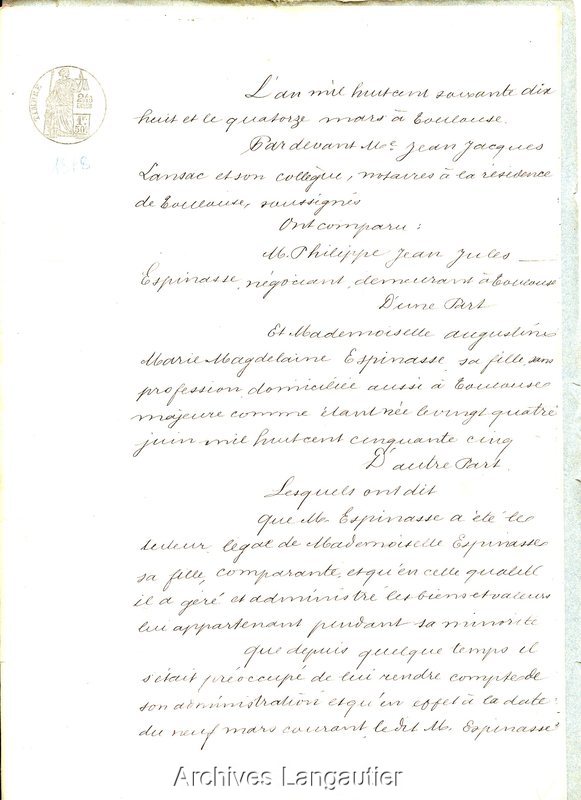 TIMBRE
2/10
1F.
50
1878
L'an mil huit cent soixante dix
huit et le quatorze mars à Toulouse.
Par devant Me. Jean Jacques
Lansac et son collègue, notaires à la résidence
de Toulouse, soussignés
Ont comparu :
M. Philippe Jean Jules
Espinasse, négociant, demeurant à Toulouse
D'une Part
Et Mademoiselle Augustine
Marie Magdelaine Espinasse sa fille, sans
profession domiciliée aussi à Toulouse
majeure comme étant née le vingt quatre
juin mil huit cent cinquante cinq
D'autre Part.
Lesquels ont dit
que M. Espinasse a été le
tuteur légal de Mademoiselle Espinasse
sa fille, comparante, et qu'en cette qualité
il a géré et administré les biens et valeurs
lui appartenant pendant sa minorité
que depuis quelque temps il
s'était préoccupé de lui rendre compte de
son administration et qu'en effet à la date
du neuf mars courant ledit M. Espinasse
Archives Langautier